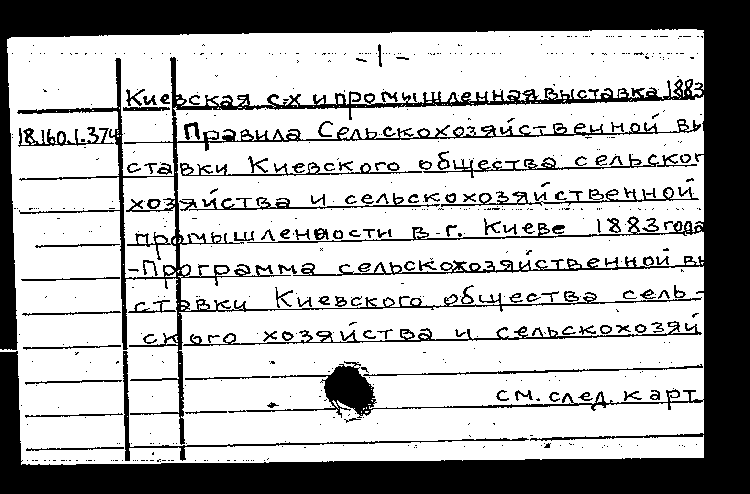 - 1 -
Киевская с-х и промышленная выставка 1883
18.160.1.374 Правила Сельскохозяйственной вы
ставки Киевского общества сельског
хозяйства и сельскохозяйственной
промышленности в г. Киеве 1883 года
-Программа сельскохозяйственной вы
ставки Киевского общества сель-
ского хозяйства и сельскохозяй
см. след. карт